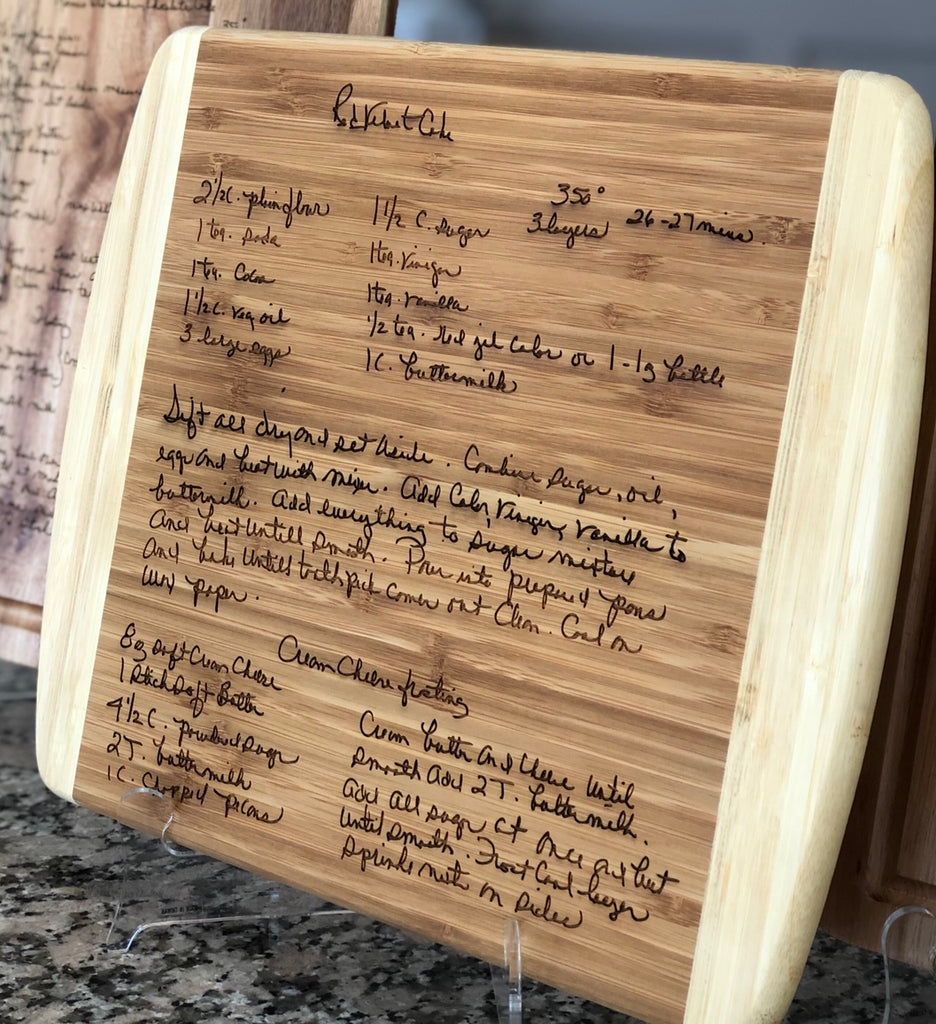 Red Velvet Cake
350°
3 layers 26-27 mins.
2 1/2 C. plain flour
1 tea. soda
1 tea. Cocoa
1 1/2 C. veg oil
3 large eggs
1 1/2 C. sugar
1 tea. Vinegar
1 tea. vanilla
1/2 tea. Red gel color or 1-1oz bottle
1 C. buttermilk
Sift all dry and set aside. Combine sugar, oil,
eggs and beat with mixer. Add Color, Vinegar, Vanilla to
buttermilk. Add everything to sugar mixture
And beat Untill smooth. Pour into prepared pans
And bake Untill toothpick comes out Clean. Cool on
wax paper.
Cream Cheese frosting
8oz soft Cream Cheese
1 stick soft Butter
4 1/2 C. powdered sugar
2T. buttermilk
1 C. Chopped pecans
Cream butter And Cheese Until
smooth Add 2T. buttermilk.
Add All sugar at once and beat
Until smooth. Frost Cool layers
Sprinkle nuts on sides